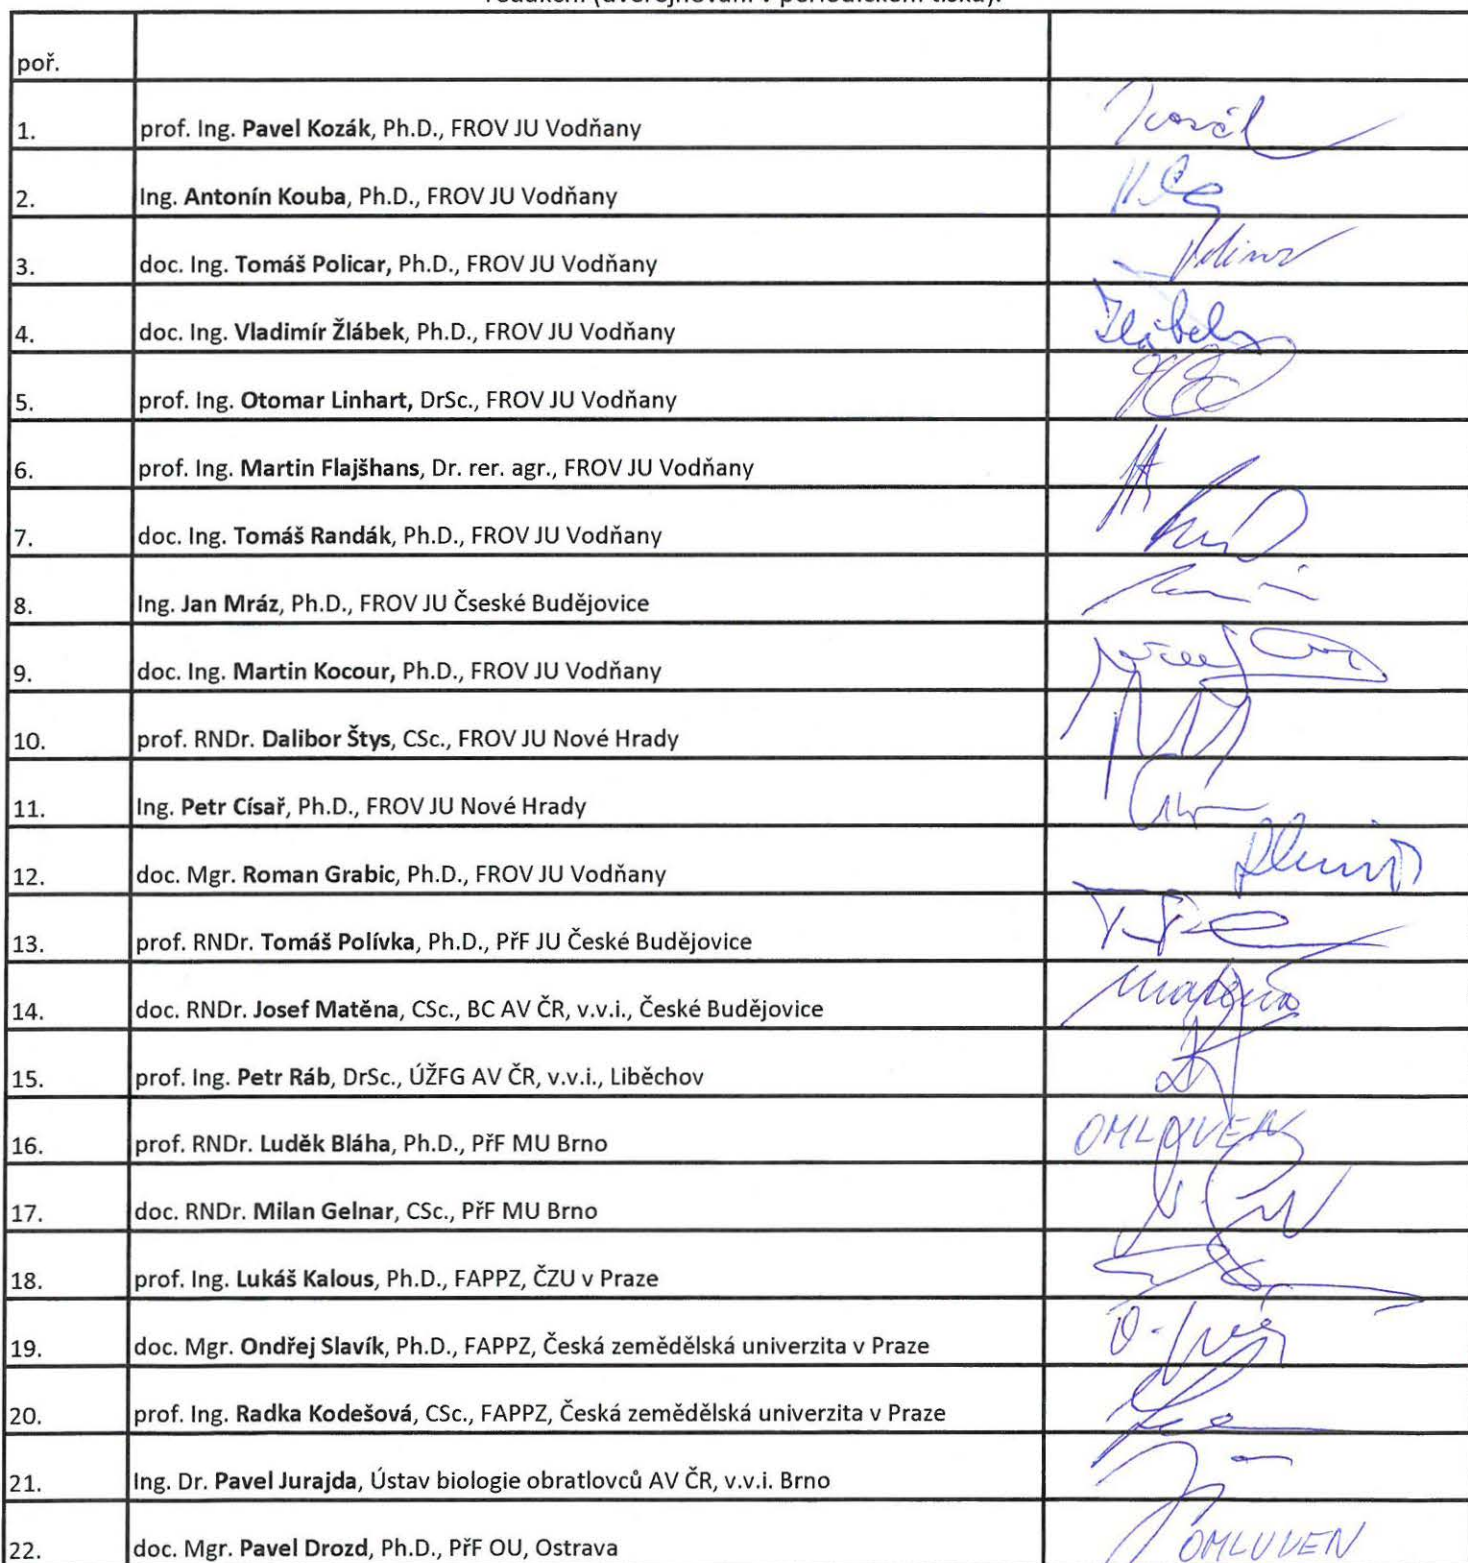 redakční (uveřejňování v periodickém tisku).
poř.
1. prof. Ing. Pavel Kozák, Ph.D., FROV JU Vodňany
2. Ing. Antonín Kouba, Ph.D., FROV JU Vodňany
3. doc. Ing. Tomáš Policar, Ph.D., FROV JU Vodňany
4. doc. Ing. Vladimír Žlábek, Ph.D., FROV JU Vodňany Žlábek
5. prof. Ing. Otomar Linhart, DrSc., FROV JU Vodňany
6. prof. Ing. Martin Flajšhans, Dr. rer. agr., FROV JU Vodňany
7. doc. Ing. Tomáš Randák, Ph.D., FROV JU Vodňany
8. Ing. Jan Mráz, Ph.D., FROV JU Čseské Budějovice
9. doc. Ing. Martin Kocour, Ph.D., FROV JU Vodňany
10. prof. RNDr. Dalibor Štys, CSc., FROV JU Nové Hrady
11. Ing. Petr Císař, Ph.D., FROV JU Nové Hrady
12. doc. Mgr. Roman Grabic, Ph.D., FROV JU Vodňany
13. prof. RNDr. Tomáš Polívka, Ph.D., PřF JU České Budějovice
14. doc. RNDr. Josef Matěna, CSc., BC AV ČR, v.v.i., České Budějovice
15. prof. Ing. Petr Ráb, DrSc., ÚŽFG AV ČR, v.v.i., Liběchov
16. prof. RNDr. Luděk Bláha, Ph.D., PřF MU Brno OMLUVEN
17. doc. RNDr. Milan Gelnar, CSc., PřF MU Brno
18. prof. Ing. Lukáš Kalous, Ph.D., FAPPZ, ČZU v Praze
19. doc. Mgr. Ondřej Slavík, Ph.D., FAPPZ, Česká zemědělská univerzita v Praze
20. prof. Ing. Radka Kodešová, CSc., FAPPZ, Česká zemědělská univerzita v Praze
21. Ing. Dr. Pavel Jurajda, Ústav biologie obratlovců AV ČR, v.v.i. Brno
22. doc. Mgr. Pavel Drozd, Ph.D., PřF OU, Ostrava OMLUVEN